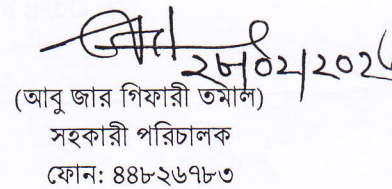 ২৮/০২/২০২
(আবু জার গিফারী তমাল)
সহকারী পরিচালক
ফোন: ৪৪৮২৬৭৮৩